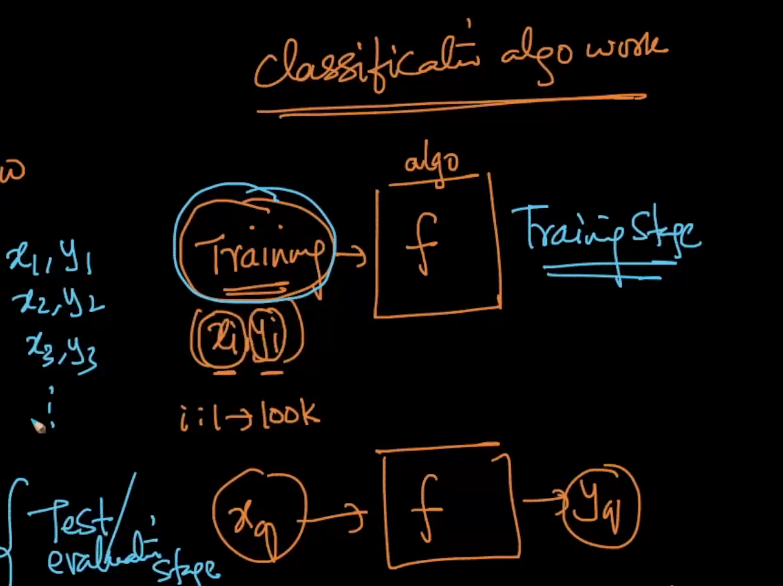 Classificatin algo work
w
algo
x1, y1
x2, y2
x3, y3
Training → f
Traing Stage
(xi yi)
i : 1 → 100k
Test/
evaluatin
stage
xq → f → yq